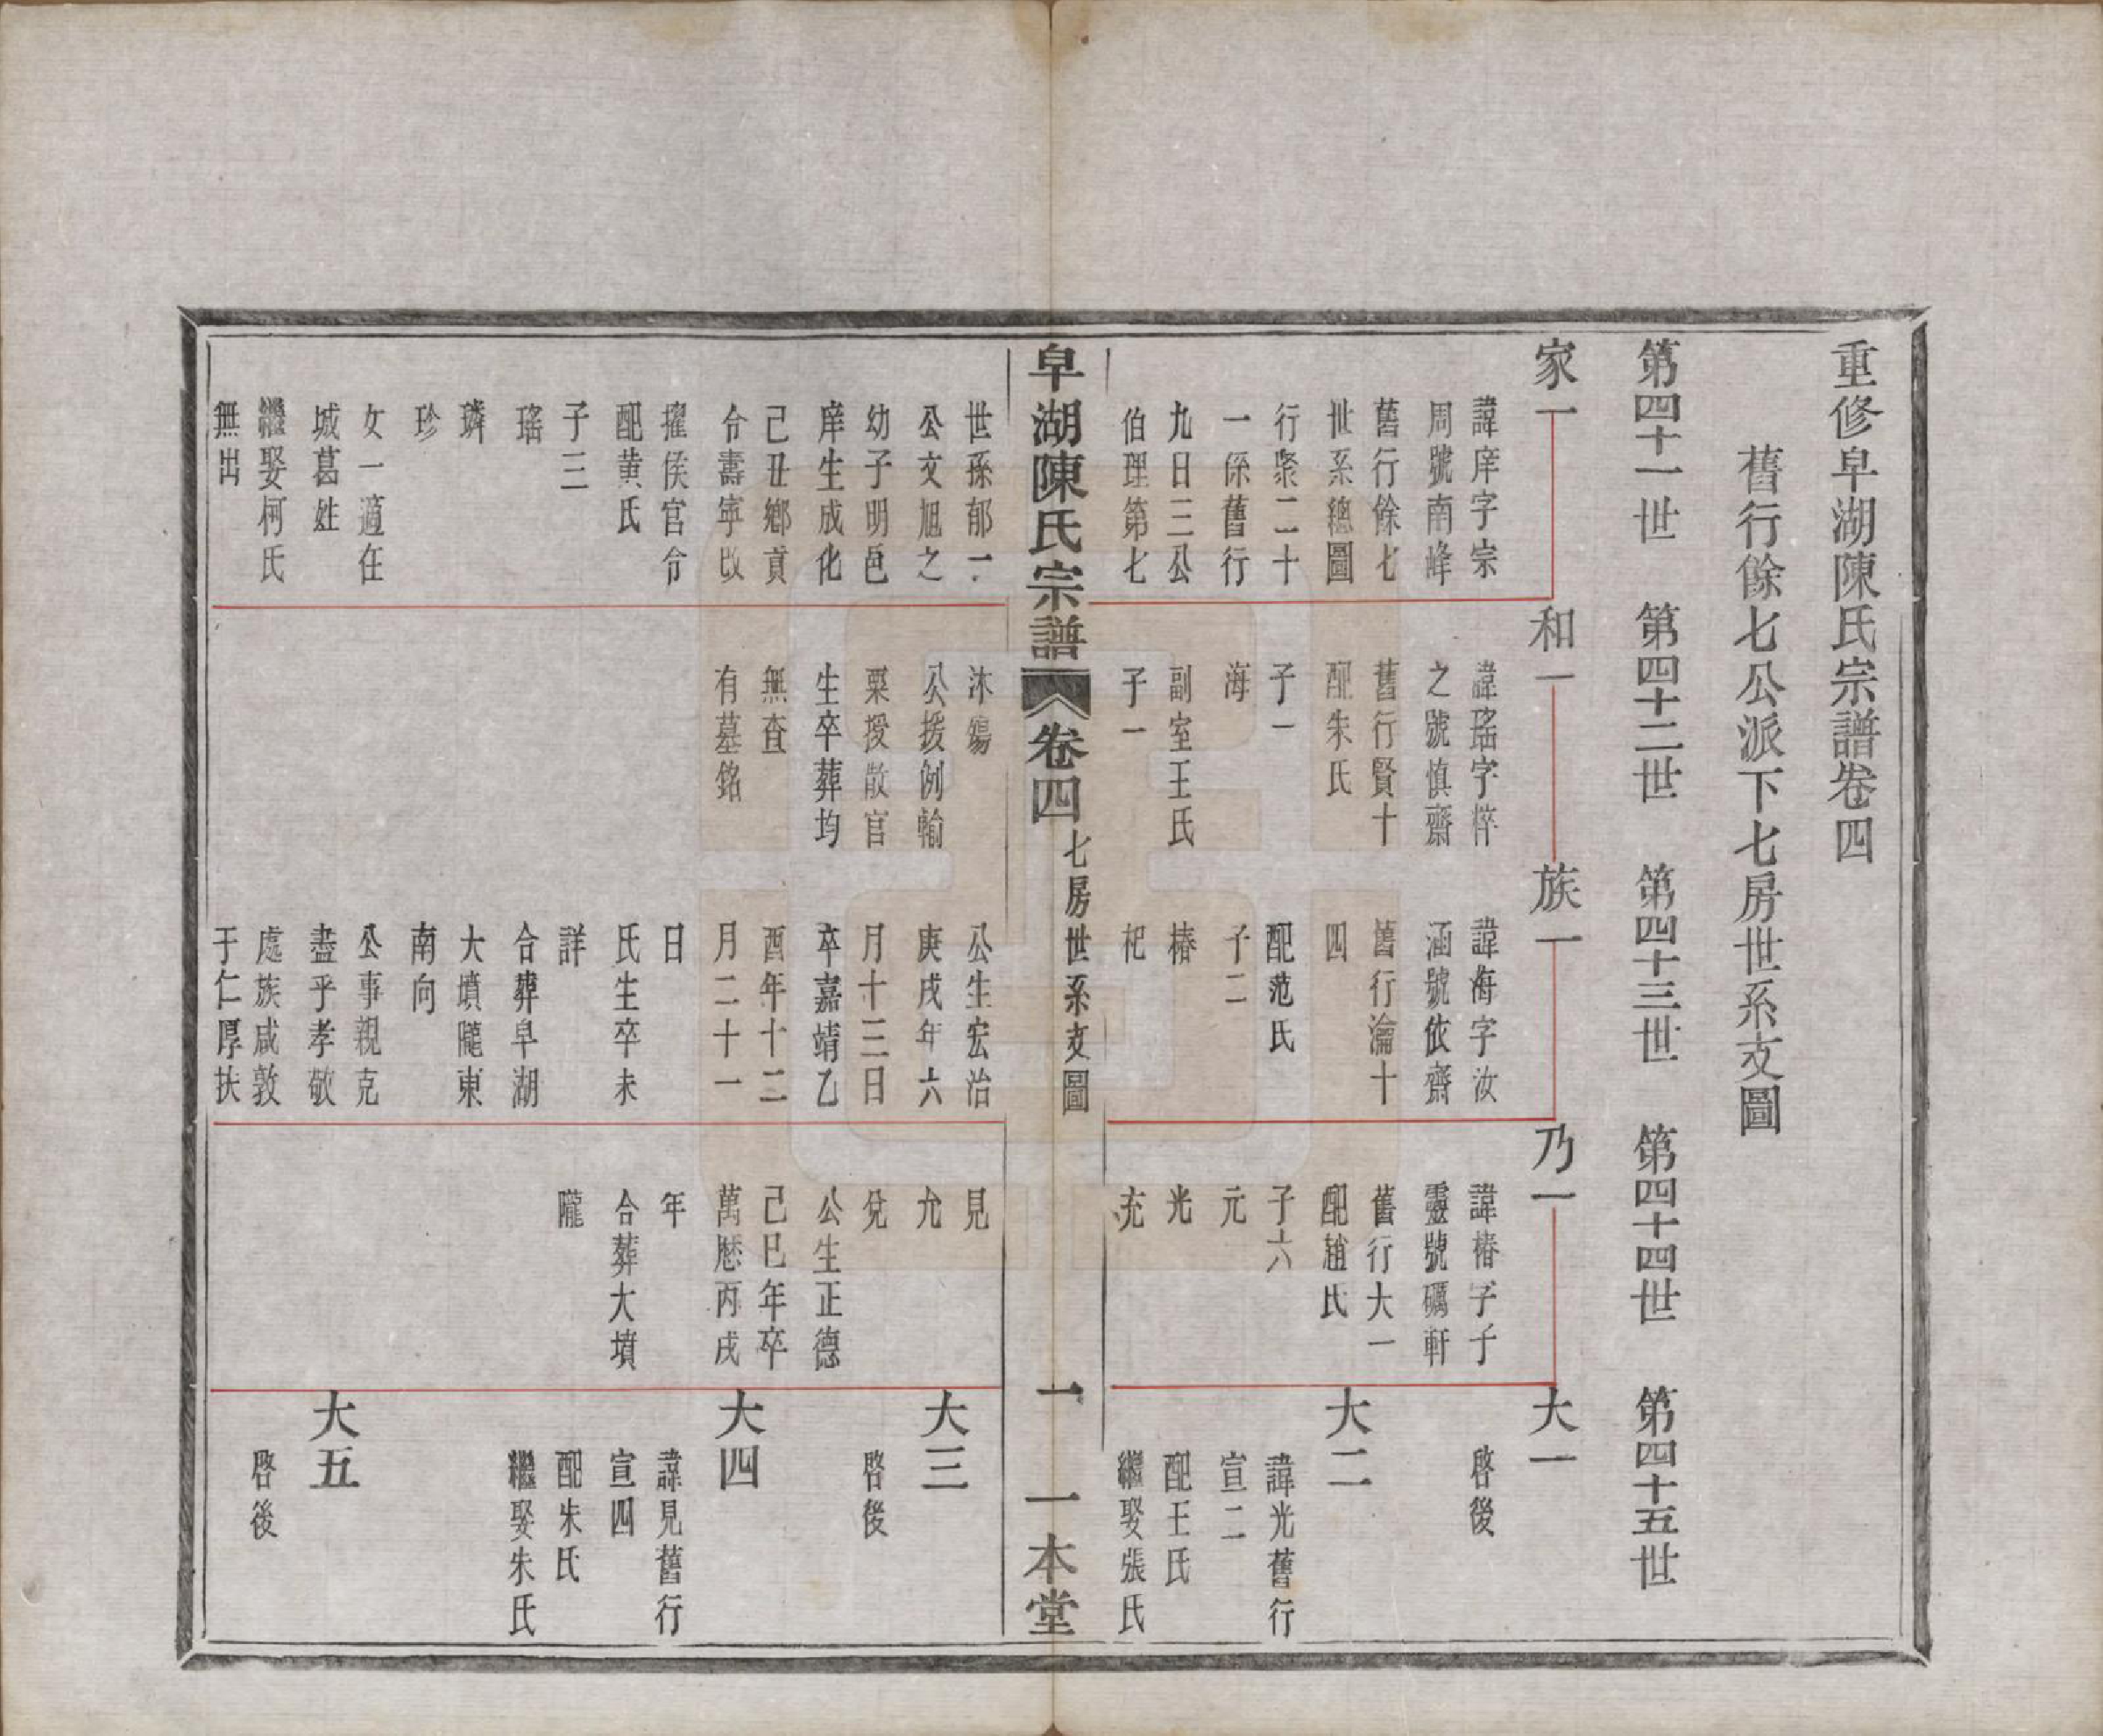 重修皁湖陳氏宗譜卷四
舊行餘七公派下七房世系支圖
第四十一世
第四十二世
第四十三世
第四十四世
第四十五世
家一
諱庠字宗
周號南峰
舊行餘七
世系總圖
行聚二十
一係舊行
九日三公
伯理第七
世孫郁一
公文旭之
幼子明邑
庠生成化
己丑鄉貢
令壽寧改
擢侯官令
配黃氏
子三
瑤
璘
珍
女一適任
城葛姓
繼娶柯氏
無出
和一
諱瑤字粹
之號慎齋
舊行賢十
配朱氏
子一
海
副室王氏
子一
沐殤
公援例輸
粟授散官
生卒葬均
無查
有墓銘
族一
諱海字汝
涵號依齋
舊行瀹十
四
配范氏
子二
椿
杞
公生宏治
庚戌年六
月十三日
卒嘉靖乙
酉年十二
月二十一
日
氏生卒未
詳
合葬皁湖
大墳隴東
南向
公事親克
盡乎孝敬
處族咸敦
于仁厚扶
乃一
諱椿字子
靈號礪軒
舊行大一
配趙氏
子六
元
光
充
見
允
兌
公生正德
己巳年卒
萬歷丙戌
年
合葬大墳
隴
大一
啓後
大二
諱光舊行
宣二
配王氏
繼娶張氏
大三
啓後
大四
諱見舊行
宣四
配朱氏
繼娶朱氏
大五
啓後
皁湖陳氏宗譜
卷四
七房世系支圖
一
一本堂